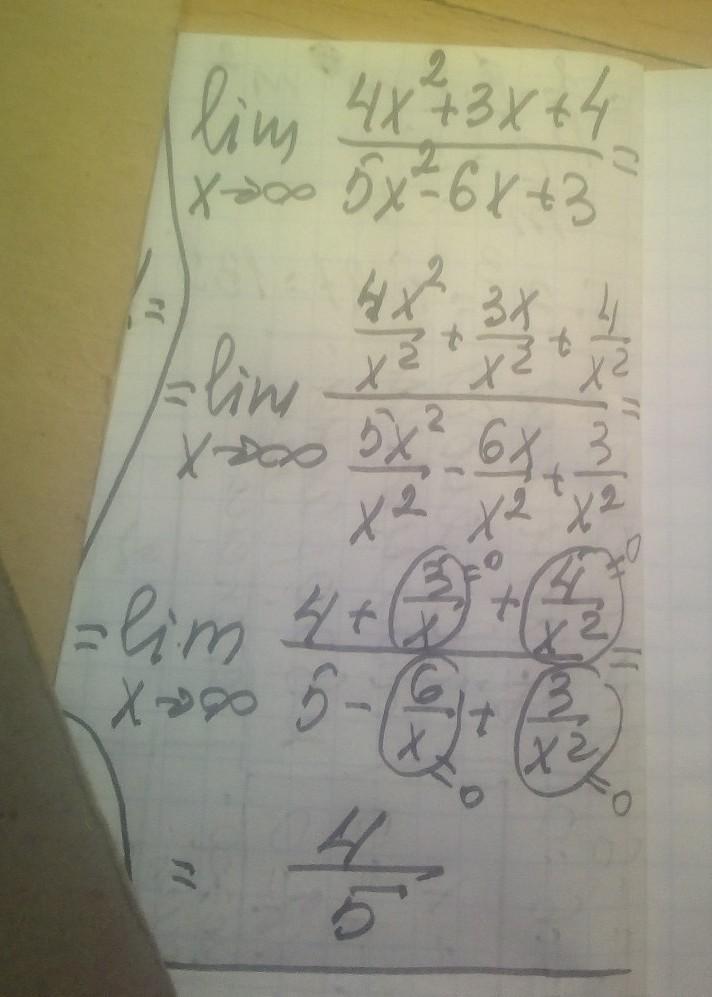 lim 4x²+3x+4 =
x→∞ 5x²-6x+3
=
=lim 4x²/x² + 3x/x² + 4/x² =
x→∞ 5x²/x² - 6x/x² + 3/x²
=lim 4 + 3/x =0 + 4/x² =0 =
x→∞ 5 - 6/x =0 + 3/x² =0
= 4/5